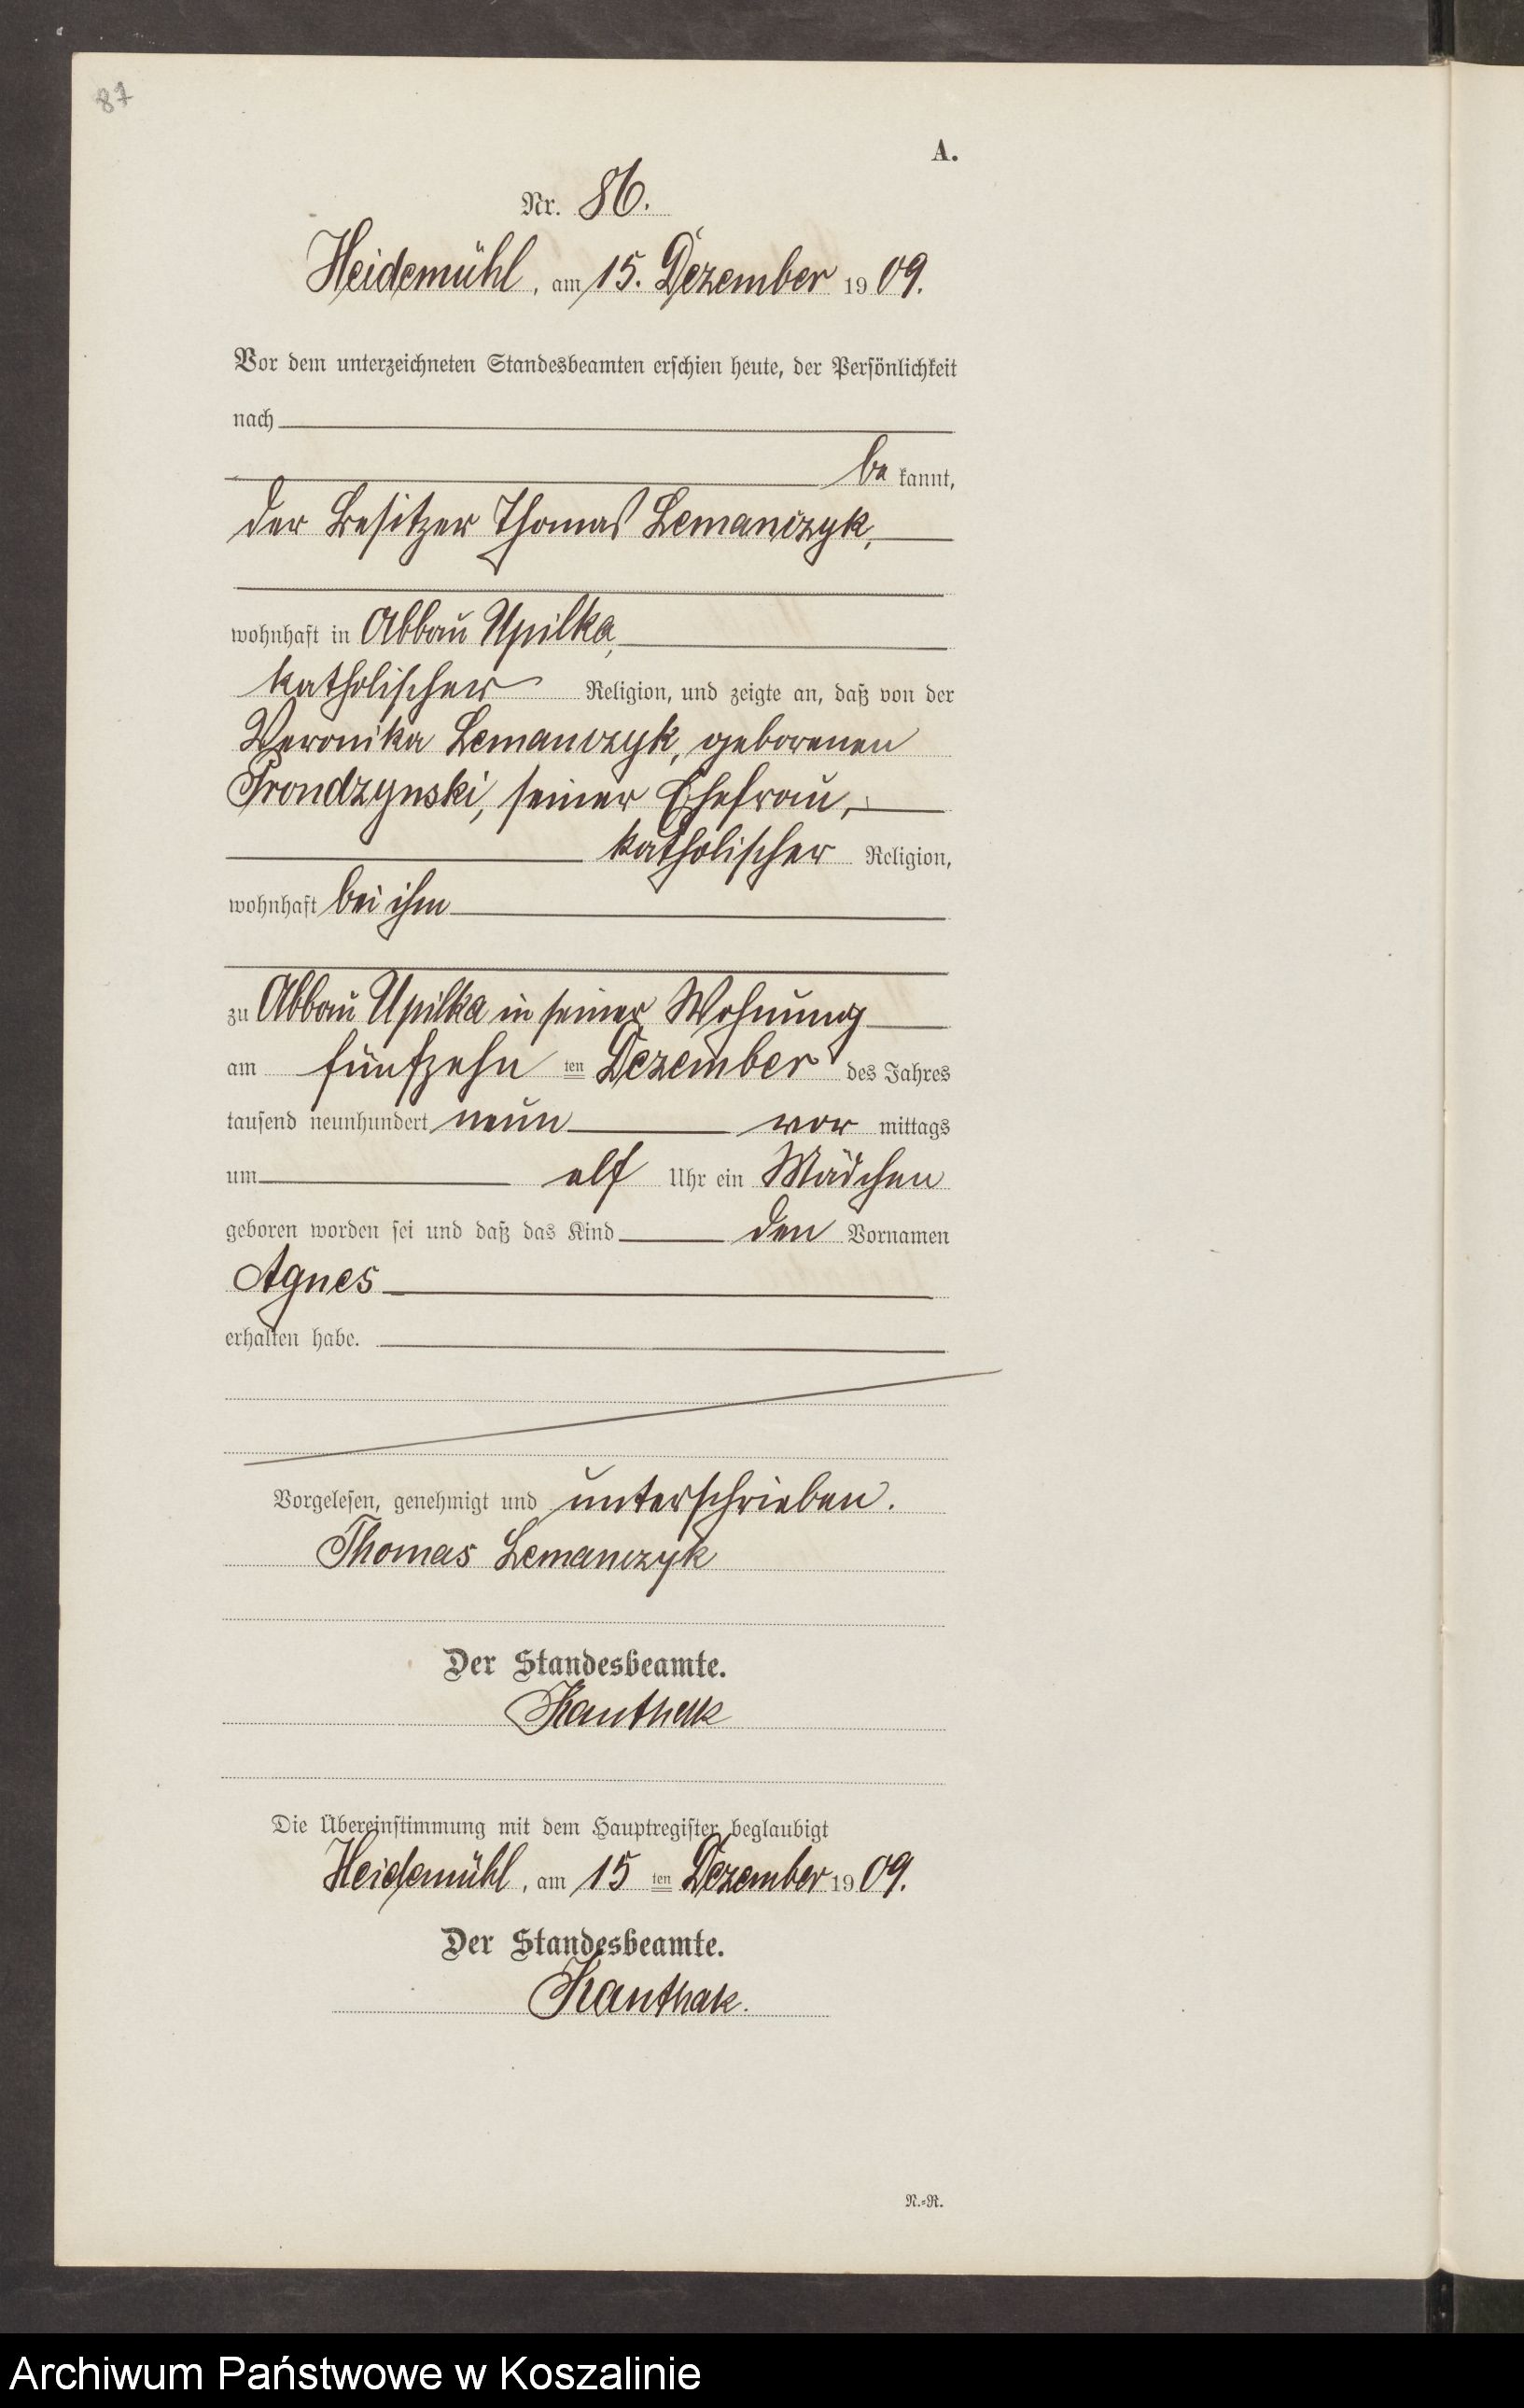 87
A.
Nr. 86.
Heidemühl, am 15. Dezember 1909.
Vor dem unterzeichneten Standesbeamten erschien heute, der Persönlichkeit
nach
be kannt,
der Besitzer Thomas Lemanczyk,
wohnhaft in Abbau Upilka,
katholischer Religion, und zeigte an, daß von der
Veronika Lemanczyk, geborenen
Prondzynski, seiner Ehefrau,
katholischer Religion,
wohnhaft bei ihm
zu Abbau Upilka in seiner Wohnung
am fünfzehn ten Dezember des Jahres
tausend neunhundert neun vor mittags
um elf Uhr ein Mädchen
geboren worden sei und daß das Kind den Vornamen
Agnes
erhalten habe.
Vorgelesen, genehmigt und unterschrieben.
Thomas Lemanczyk
Der Standesbeamte.
Kanthak
Die Übereinstimmung mit dem Hauptregister beglaubigt
Heidemühl, am 15 ten Dezember 1909.
Der Standesbeamte.
Kanthak.
N.=R.
Archiwum Państwowe w Koszalinie